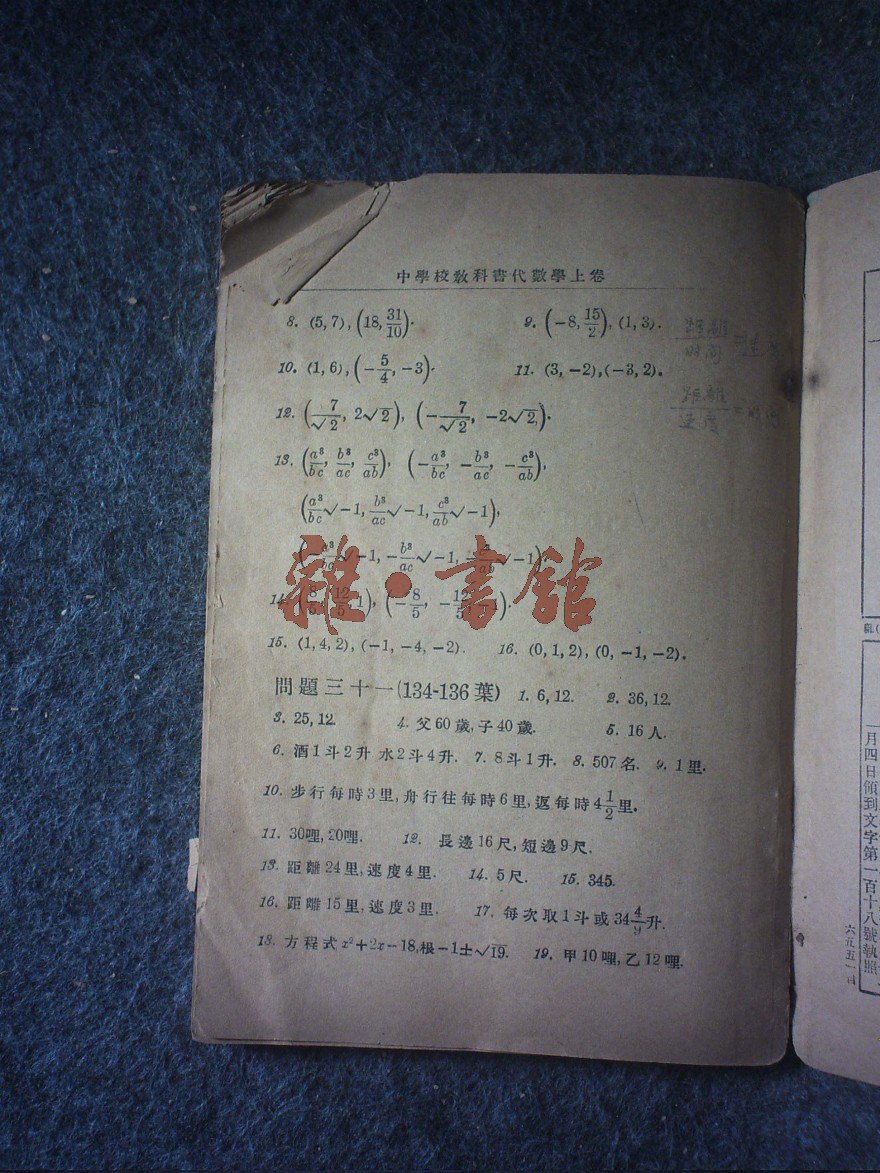 中學校教科書代數學上卷
8. (5, 7), (18, 31/10).
9. (−8, 15/2), (1, 3).
10. (1, 6), (−5/4, −3).
11. (3, −2), (−3, 2).
12. (7/√2, 2√2), (−7/√2, −2√2).
13. (a³/bc, b³/ac, c³/ab), (−a³/bc, −b³/ac, −c³/ab),
(a³/bc √−1, b³/ac √−1, c³/ab √−1),
(−a³/bc √−1, −b³/ac √−1, −c³/ab √−1).
雜·書館
14. (8/5, 12/5, 1), (−8/5, −12/5, −1).
15. (1, 4, 2), (−1, −4, −2). 16. (0, 1, 2), (0, −1, −2).
問題三十一 (134-136葉) 1. 6, 12. 2. 36, 12.
3. 25, 12. 4. 父60歲, 子40歲. 5. 16人.
6. 酒1斗2升 水2斗4升. 7. 8斗1升. 8. 507名. 9. 1里.
10. 步行每時3里, 舟行往每時6里, 返每時4 1/2里.
11. 30哩, 20哩. 12. 長邊16尺, 短邊9尺.
13. 距離24里, 速度4里. 14. 5尺. 15. 345.
16. 距離15里, 速度3里. 17. 每次取1斗或34 4/9升.
18. 方程式 x²+2x−18, 根−1±√19. 19. 甲10哩, 乙12哩.
距離/時間=速
距離/速度=時間
月四日領到文字第一百十八號執照
六五五一